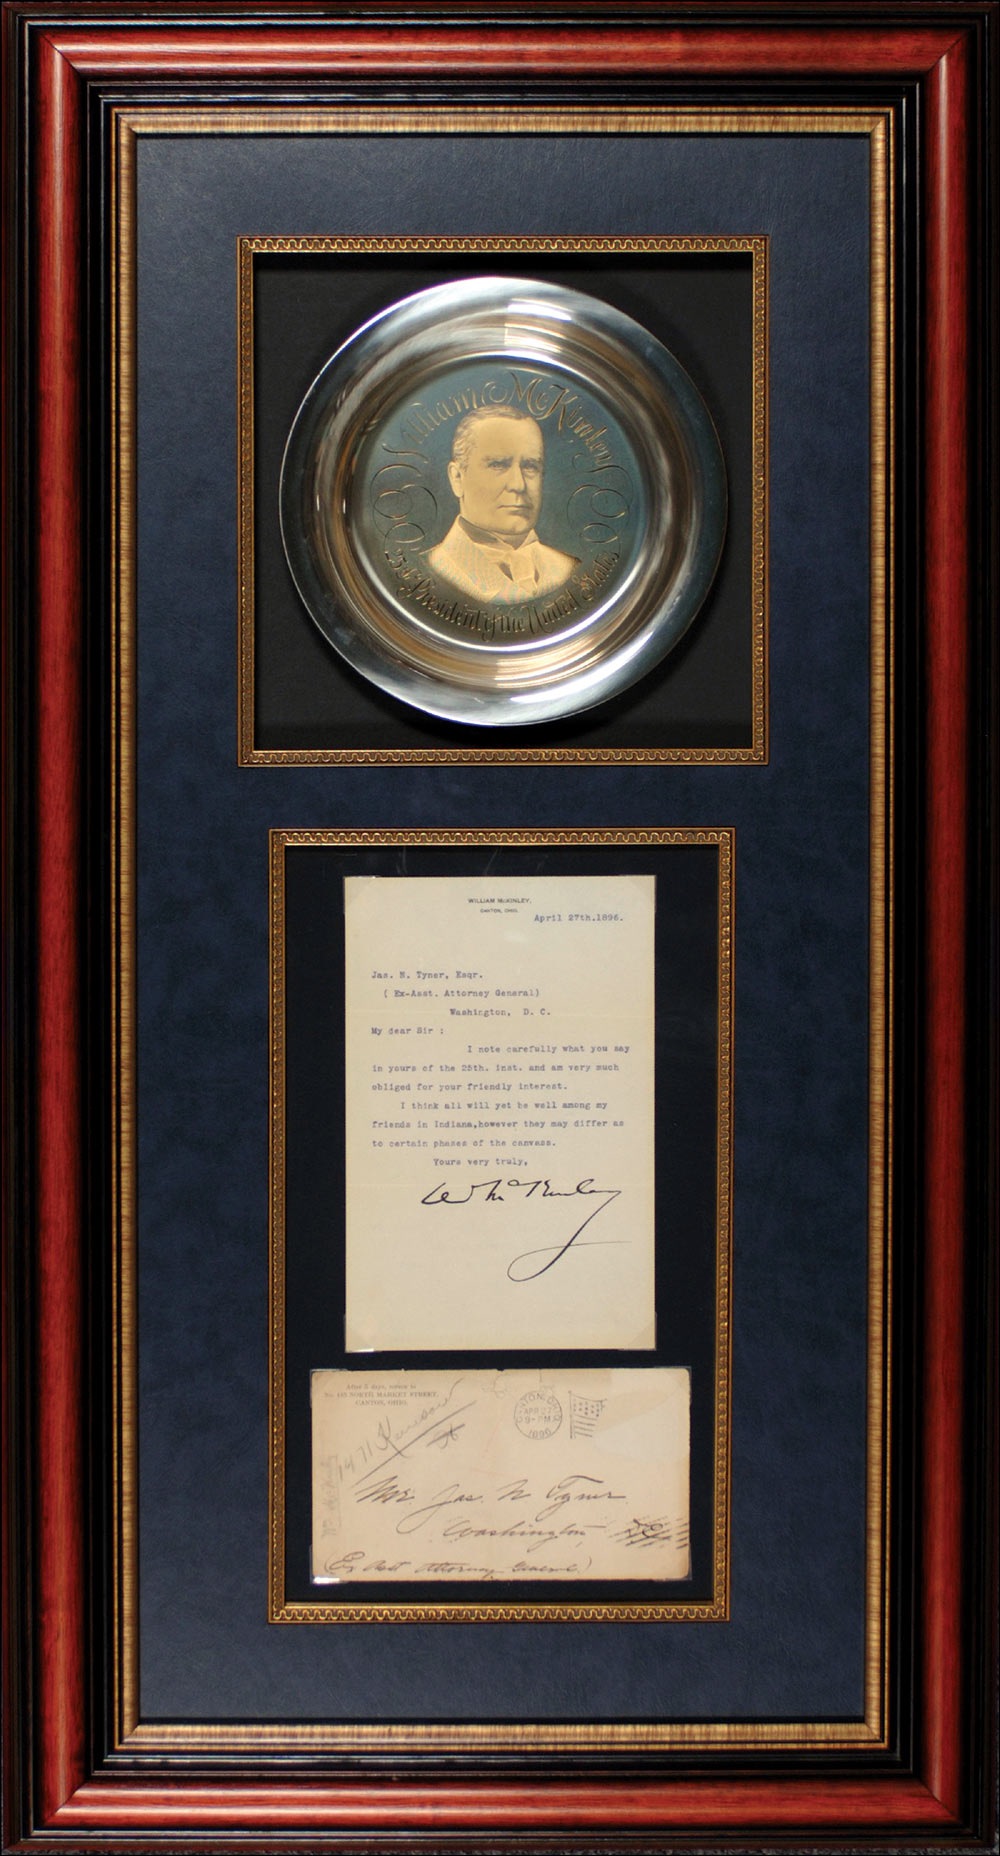 William McKinley
25th President of the United States
WILLIAM McKINLEY,
CANTON, OHIO.
April 27th.1896.
Jas. N. Tyner, Esqr.
( Ex-Asst. Attorney General)
Washington, D. C.
My dear Sir :
I note carefully what you say
in yours of the 25th. inst. and am very much
obliged for your friendly interest.
I think all will yet be well among my
friends in Indiana,however they may differ as
to certain phases of the canvass.
Yours very truly,
W McKinley
After 5 days, return to
NORTH MARKET STREET,
CANTON, OHIO.
CANTON, OHIO
APR 27
9-PM
1896
1471
Mr. Jas. N Tyner
Washington
(Ex Asst Attorney General)